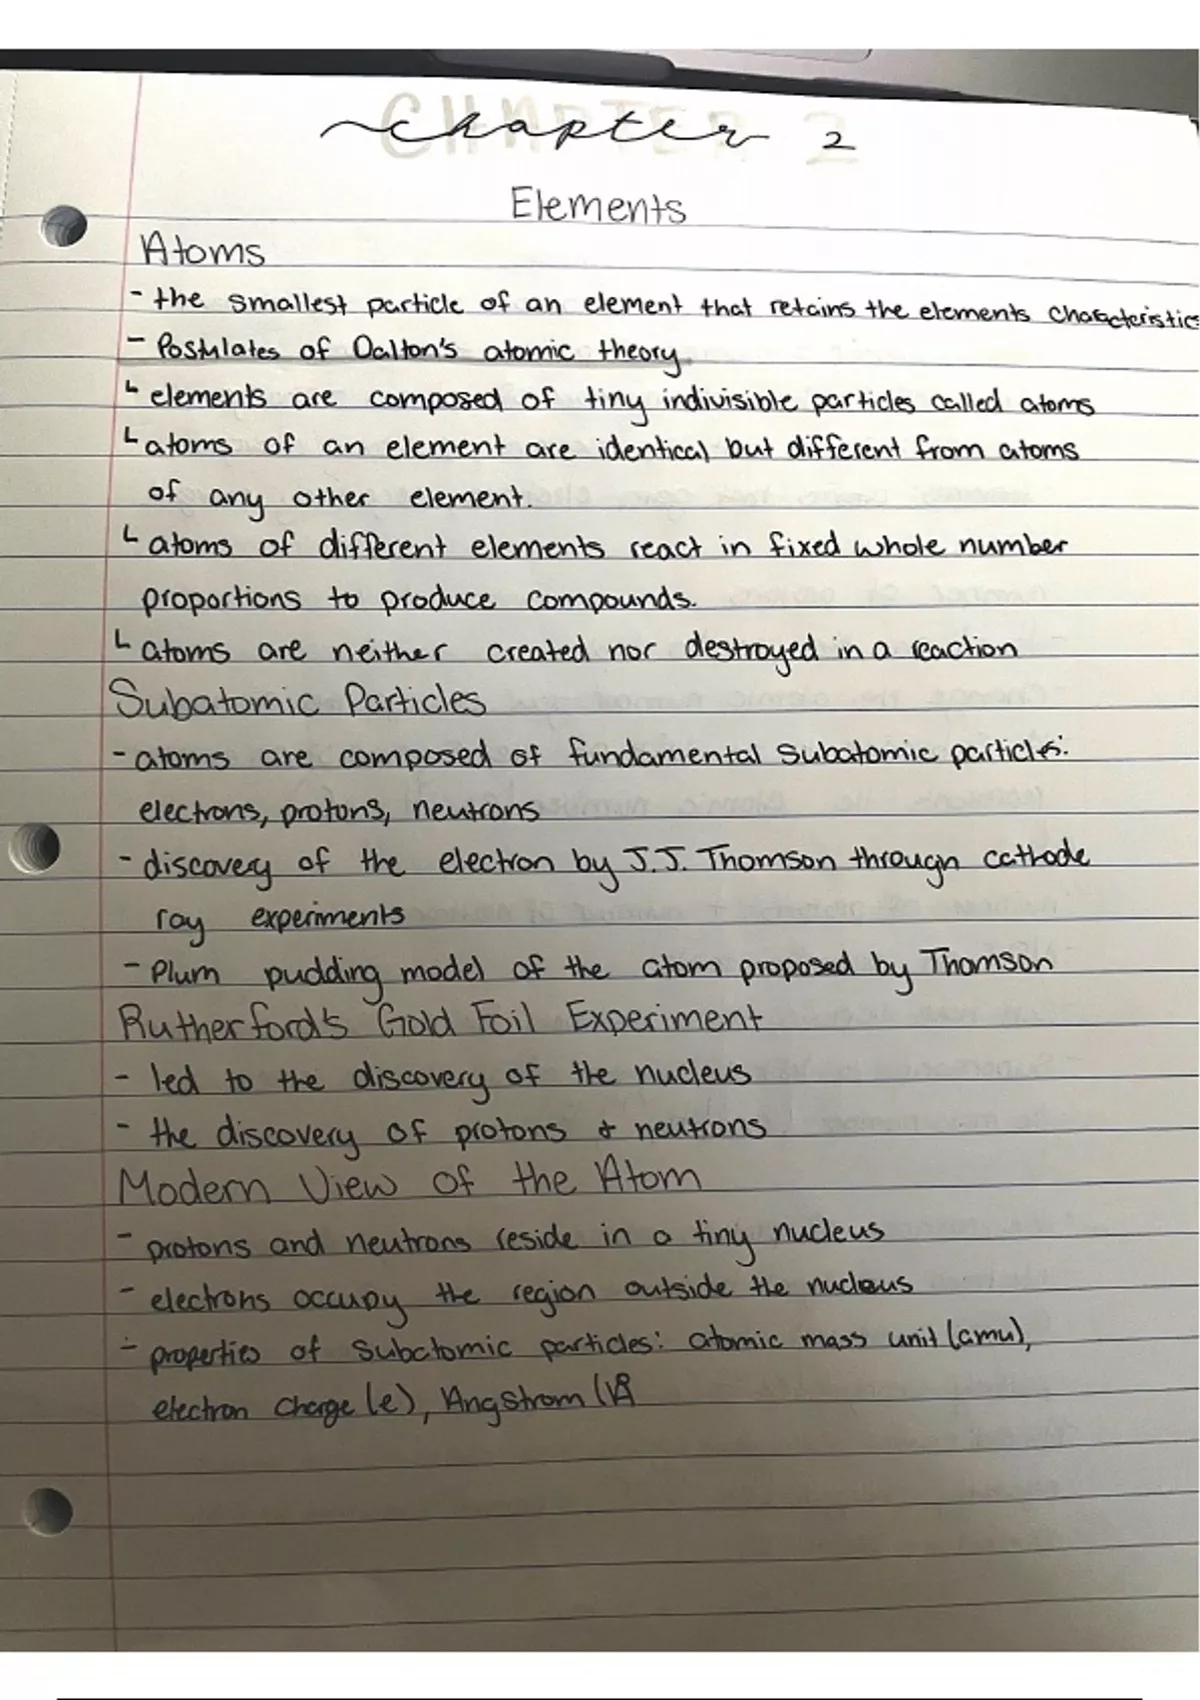 Chapter 2
Elements
Atoms
- the smallest particle of an element that retains the elements characteristics
- Postulates of Dalton's atomic theory
└ elements are composed of tiny indivisible particles called atoms
└ atoms of an element are identical but different from atoms
of any other element.
└ atoms of different elements react in fixed whole number
proportions to produce compounds.
└ atoms are neither created nor destroyed in a reaction
Subatomic Particles
- atoms are composed of fundamental subatomic particles:
electrons, protons, neutrons
- discovery of the electron by J.J. Thomson through cathode
ray experiments
- Plum pudding model of the atom proposed by Thomson
Rutherford's Gold Foil Experiment
- led to the discovery of the nucleus
- the discovery of protons & neutrons
Modern View of the Atom
- protons and neutrons reside in a tiny nucleus
- electrons occupy the region outside the nucleus
- properties of subatomic particles: atomic mass unit (amu),
electron charge (e), Angstrom (Å